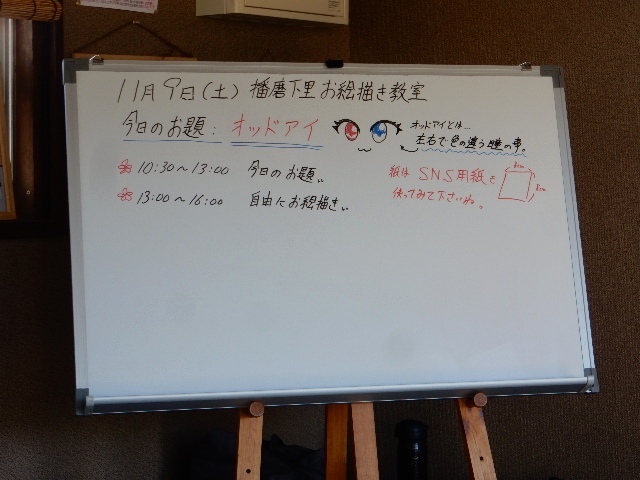 11月9日(土) 播磨下里お絵描き教室
今日のお題: オッドアイ
オッドアイとは…
左右で色の違う瞳の事。
10:30～13:00 今日のお題。
13:00～16:00 自由にお絵描き。
紙は SNS用紙を
使ってみて下さいね。